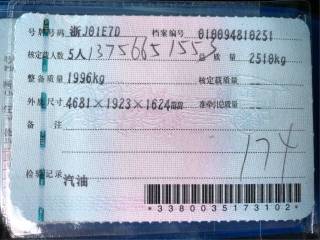 号牌号码 浙J01E7D 档案编号 010094810251
核定载人数 5人 13756651553 总质量 2510kg
整备质量 1996kg 核定载质量
外廓尺寸 4681×1923×1624mm 准牵引总质量
备注
174
检验记录 汽油
*3380035173102*